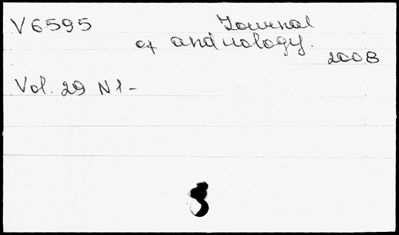 V6595 Journal
of andrology.
2008
Vol. 29 N1-